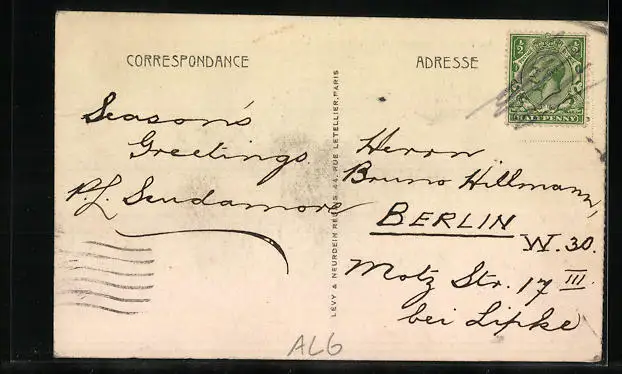 CORRESPONDANCE
ADRESSE
HALFPENNY
Season's
Greetings
P.L. Scudamore
LÉVY & NEURDEIN RÉUNIS, 44, RUE LETELLIER, PARIS
Herrn
Bruno Hillmann,
BERLIN
W. 30.
Motz Str. 17 III.
bei Lipke
ALG